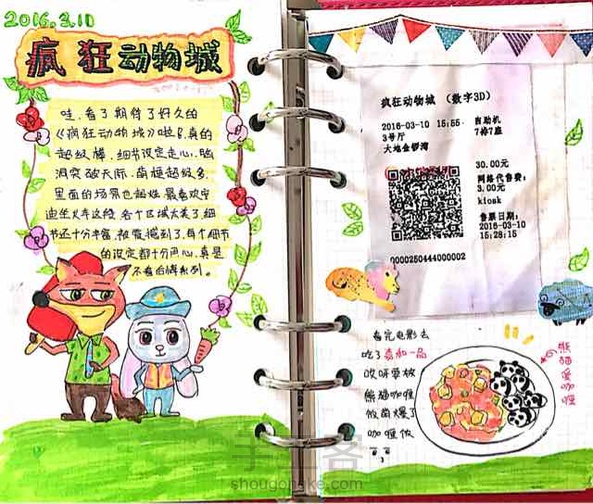 2016.3.10
疯狂动物城
哇,看了期待了好久的
《疯狂动物城》啦!真的
超级棒,细节设定走心,脑
洞突破天际,萌梗超级多,
里面的场景也超炫,最喜欢安
迪坐火车这段,各个区域太美了,细
节还十分丰富,被震撼到了,每个细节
的设定都十分用心,真是
不看白牌系列。
疯狂动物城 (数字3D)
2016-03-10 15:55 自助机
3号厅 7排7座
大地金锣湾
30.00元
网络代售费:
3.00元
kiosk
售票日期:
2016-03-10
15:28:15
0000250444000002
看完电影去
吃了
一品
熊猫咖喱
饭萌爆了
咖喱饭
熊猫爱咖喱
手工客
shougongke.com